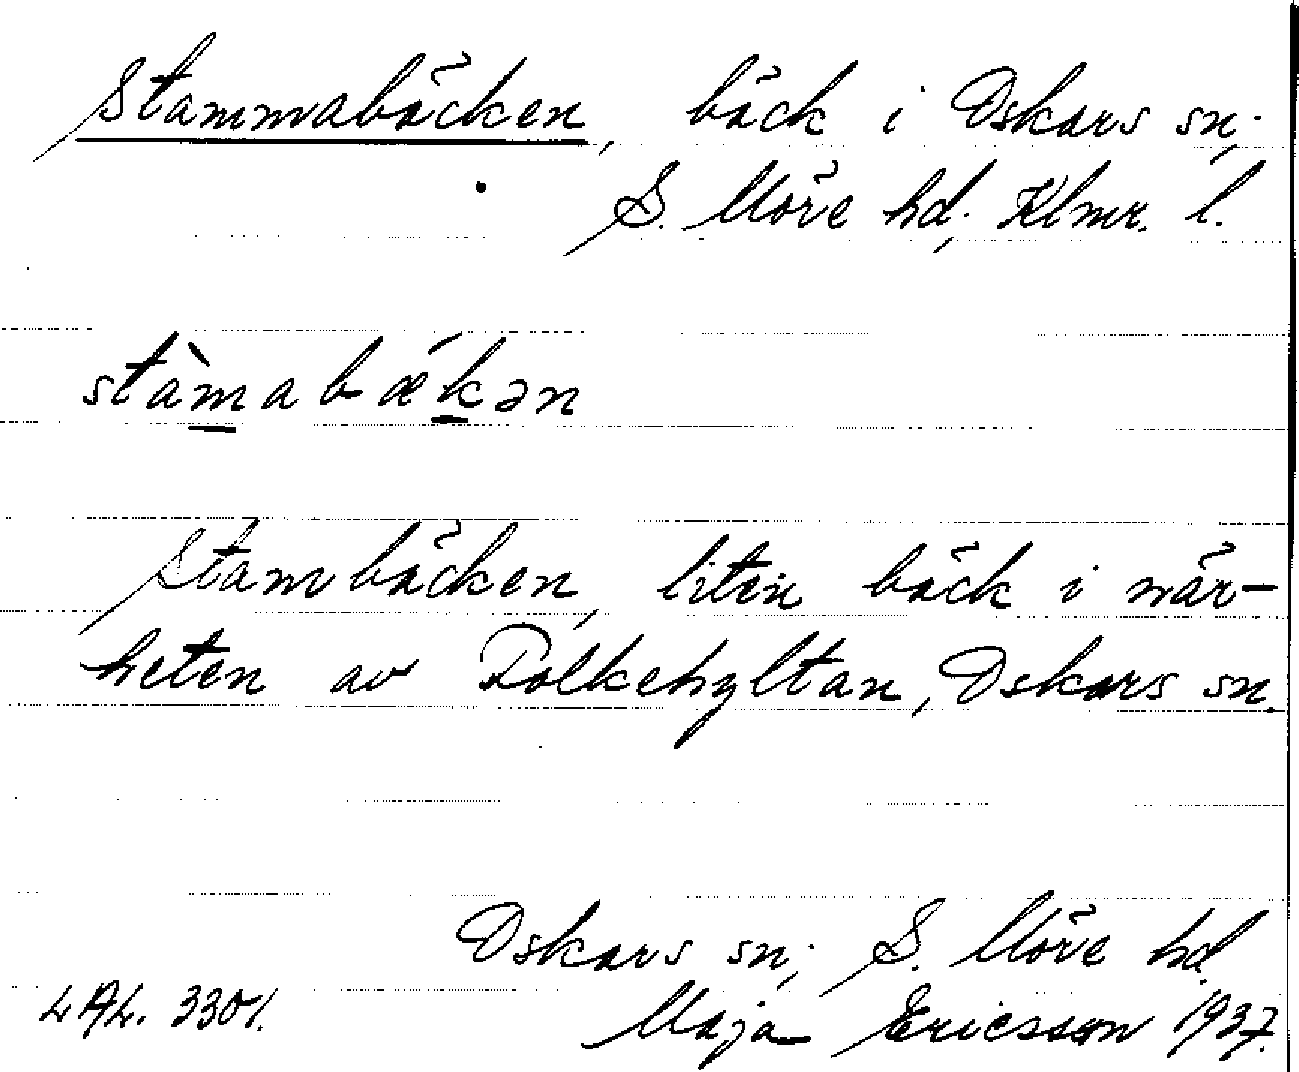 Stammabäcken, bäck i Oskars sn;
S. Möre hd; Klmr. l.
stàmabǽkən
Stambäcken, liten bäck i när-
heten av Folkehyltan, Oskars sn.
Oskars sn; S. Möre hd.
LAL. 3301. Maja Ericsson 1937.